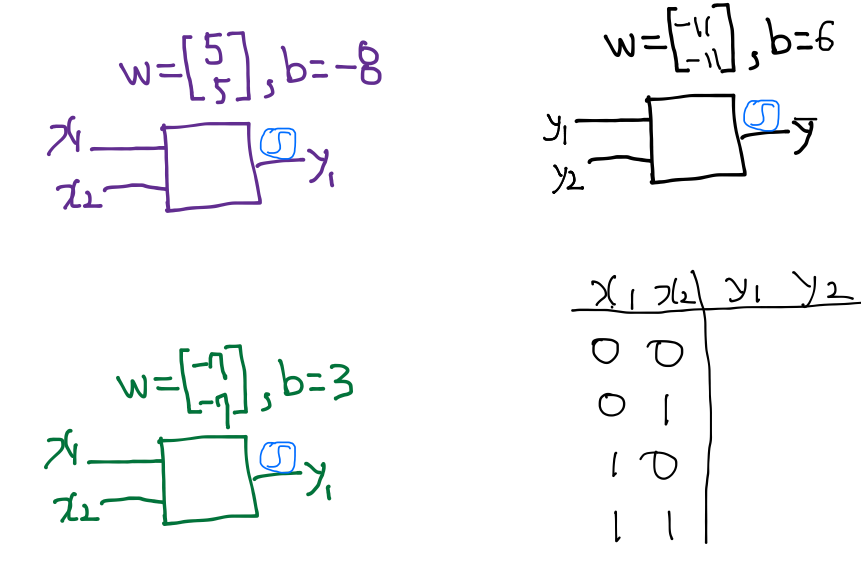 w=[5 5], b=-8
x1
x2
S
y1
w=[-11 -11], b=6
y1
y2
S
y̅
w=[-7 -7], b=3
x1
x2
S
y1
x1 x2 y1 y2
0 0
0 1
1 0
1 1